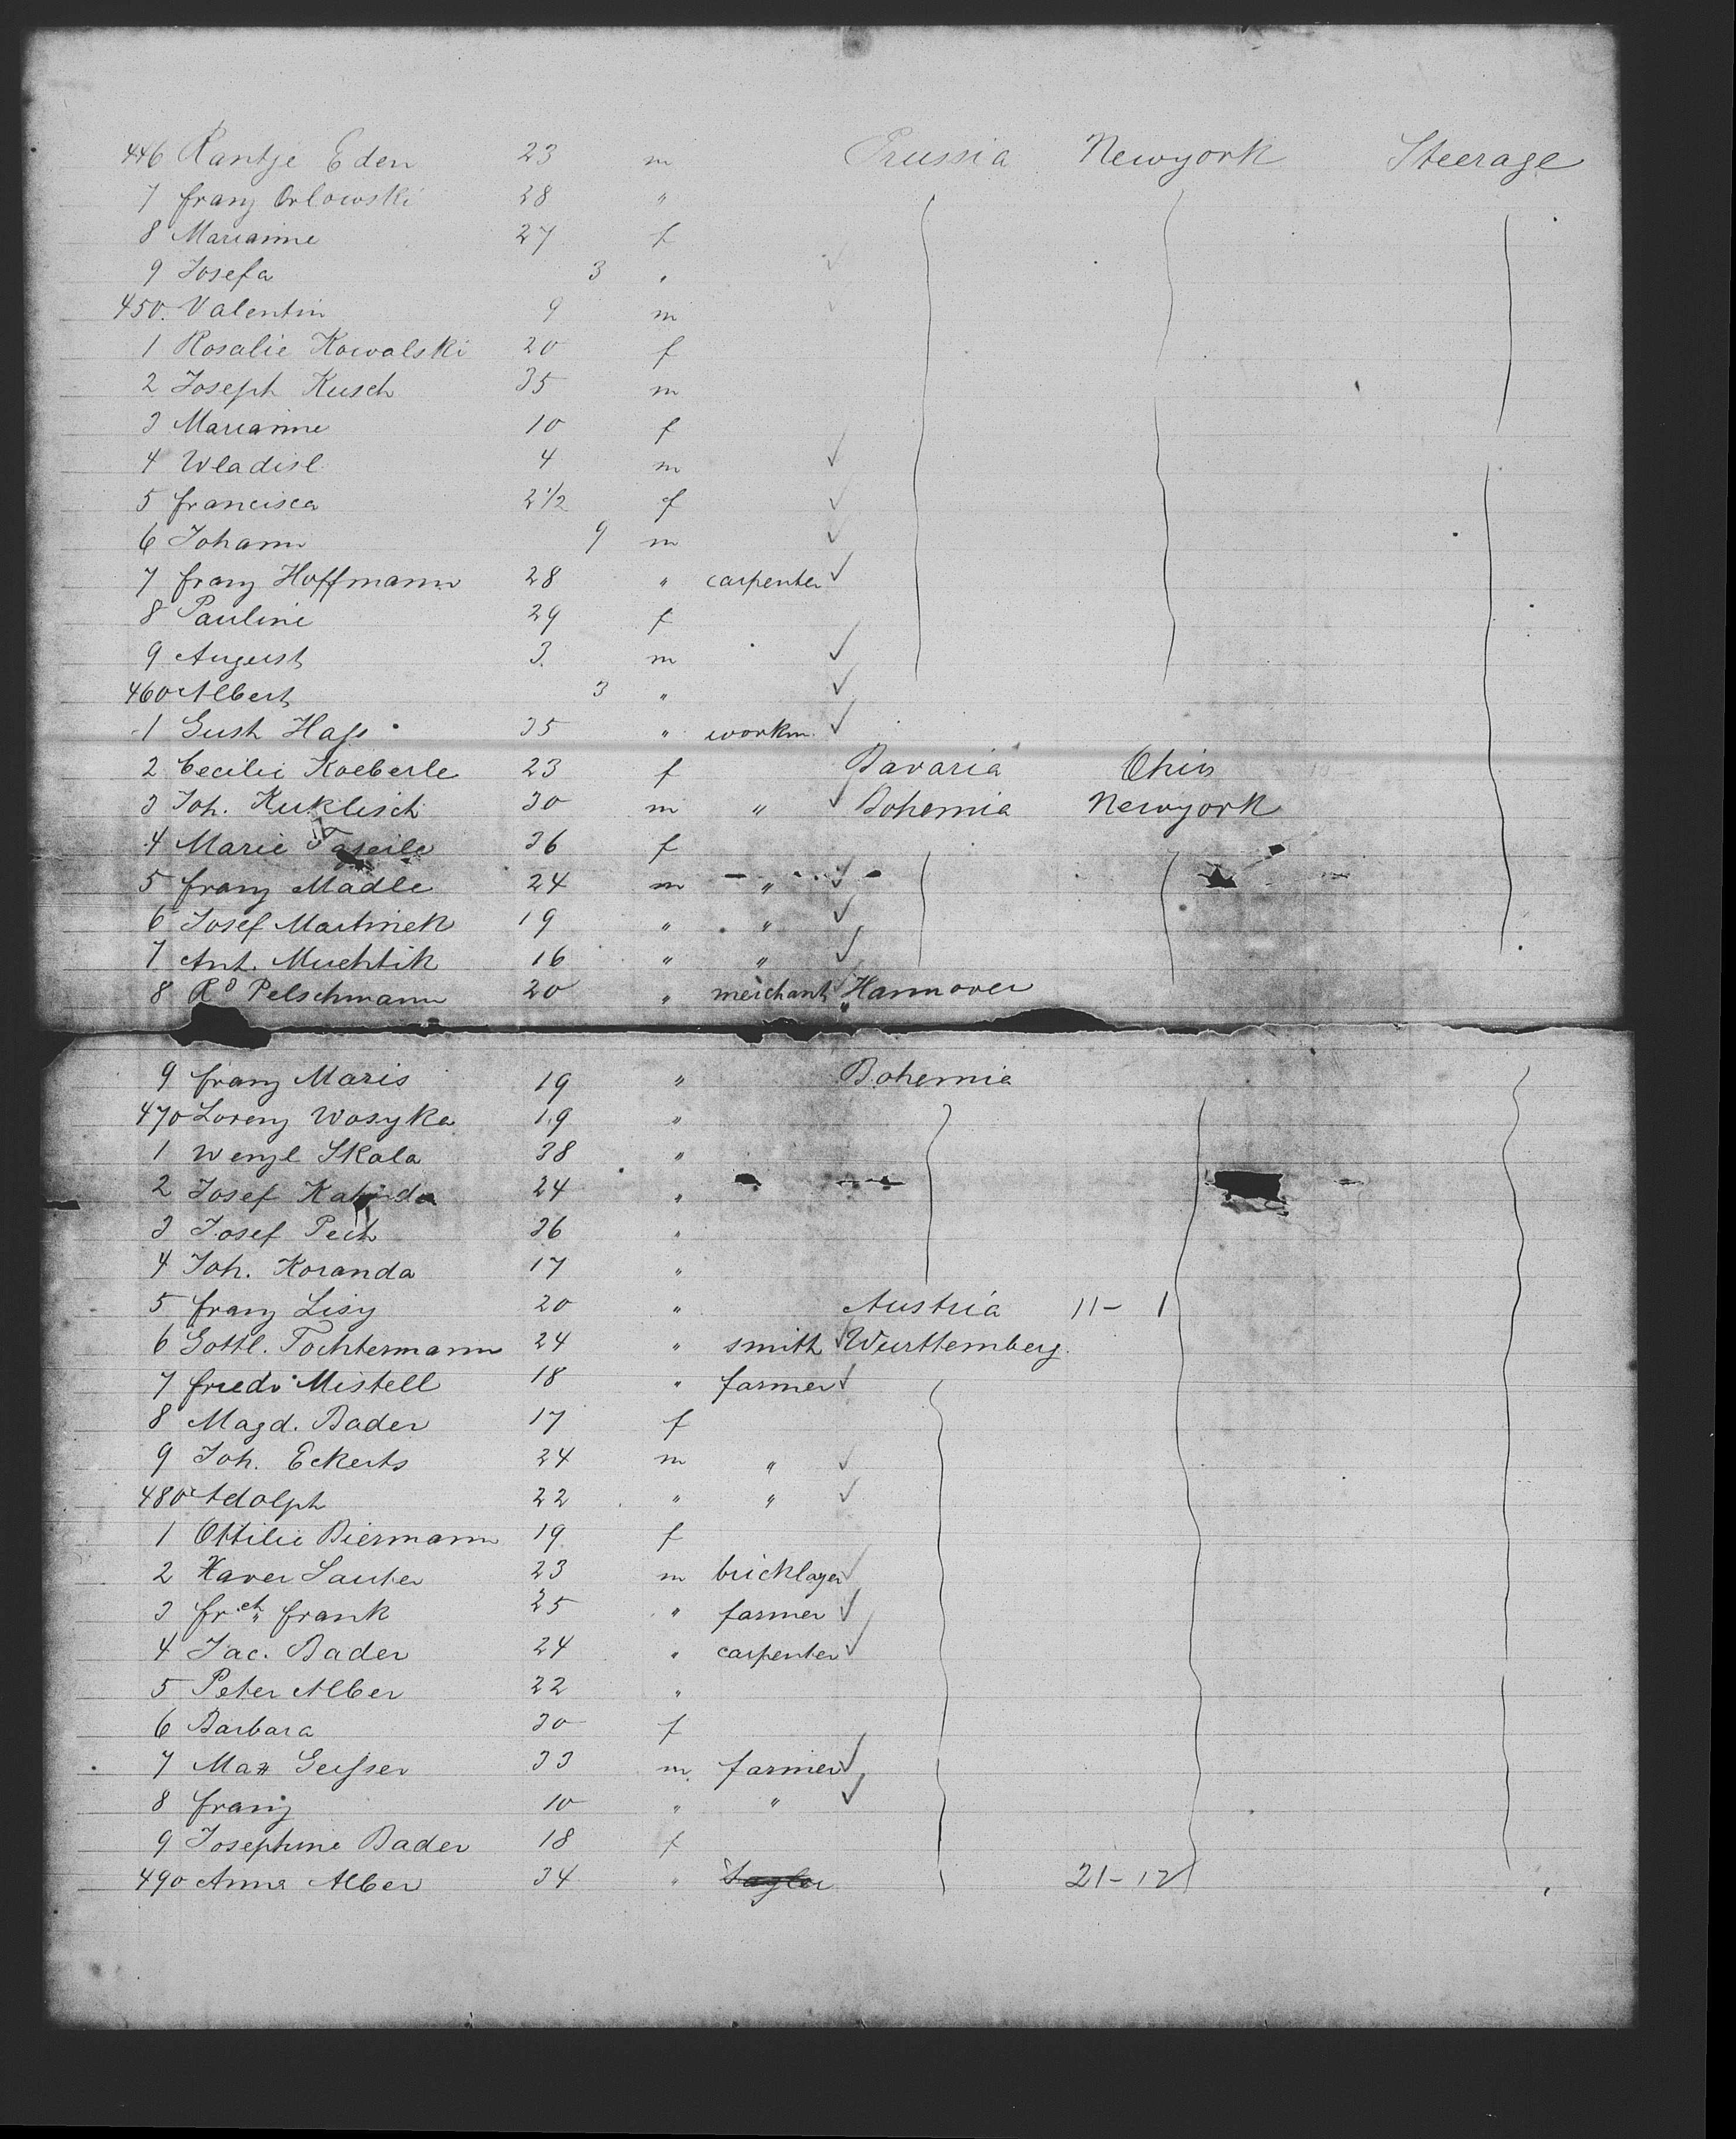 446 Rantje Eden 23 m Prussia Newyork Steerage
7 Franz Orlowski 28 "
8 Marianne 27 f
9 Josefa 3 "
450. Valentin 9 m
1 Rosalie Kowalski 20 f
2 Joseph Kusch 35 m
3 Marianne 10 f
4 Wladisl 4 m
5 Francisca 2 1/2 f
6 Johann 9 m
7 Franz Hoffmann 28 " carpenter
8 Pauline 29 f
9 August 3. m
460 Albert 3 "
1 Gust Hass 35 " workm.
2 Cecilie Koeberle 23 f Bavaria Ohio
3 Joh. Kuklisch 30 m " Bohemia Newyork
4 Marie 36 f
5 Franz Madle 24 m "
6 Josef Martinek 19 " "
7 Ant. Muchtik 16 " "
8 Rd Pelschmann 20 " merchant Hannover
9 Franz Maris 19 " Bohemia
470 Lorenz Wosyka 19 "
1 Wenzl Skala 38 "
2 Josef 24 "
3 Josef Pech 36 "
4 Joh. Koranda 17 "
5 Franz Lisy 20 " Austria 11 - 1
6 Gottl. Tochtermann 24 " smith Wurttemberg.
7 Friedr Mistell 18 " farmer
8 Magd. Bader 17 f
9 Joh. Eckerts 24 m "
480 Adolph 22 " "
1 Ottilie Biermann 19 f
2 Xaver Sauter 23 m bricklayer
3 Frch Frank 25 " farmer
4 Jac. Bader 24 " carpenter
5 Peter Alber 22 "
6 Barbara 30 f
7 Max Geisser 33 m. farmer
8 Franz 10 " "
9 Josephine Bader 18 f
490 Anna Alber 34 " 21 - 12